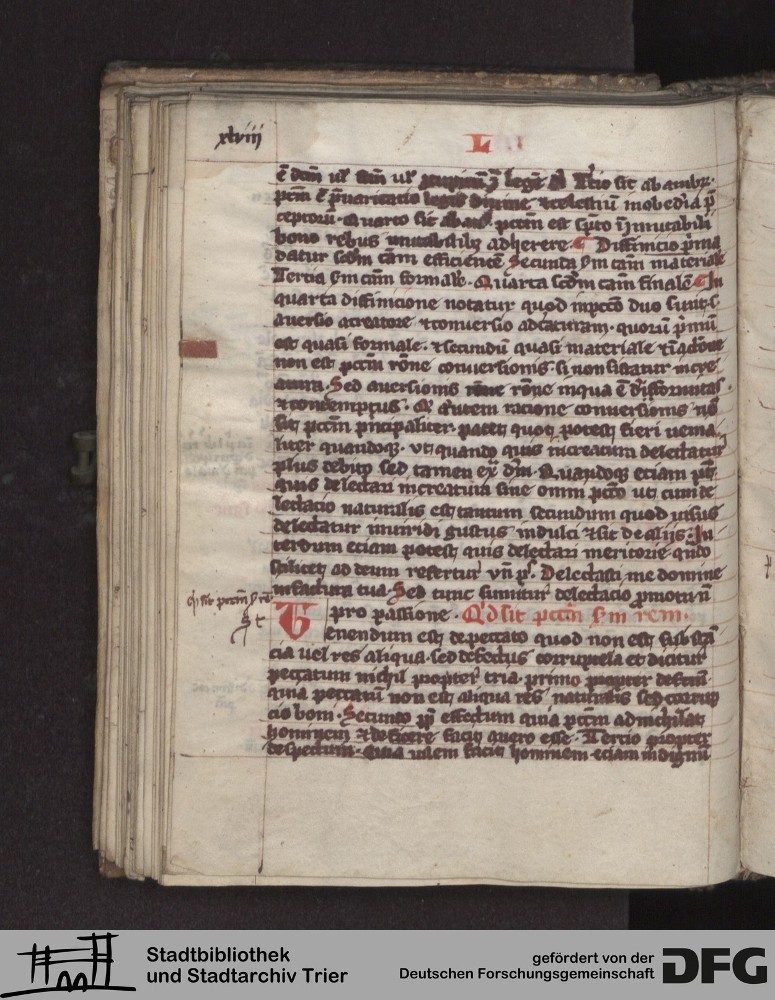 xlviii
L
ē dc̄m ul᷑ ul᷑ ɔ̄ legē Tercio sic ab ambr.
pc̄m ē p̄uaricatio legis divine ⁊celestiū inobediā p̄
ceptorū. Quarto sic pc̄tm est sp̄to īmutabili
bono rebus mutabilib; adherere. ¶ Diffinicio p̄ma
datur scdm cām efficientē Secunda sm cām materialē
Tercia sm cām formalē. Quarta scdm cām finalē ¶ In
quarta diffinicione notatur quod inpecc̄o duo sunt. s.
aversio acreatore ⁊conversio adcreaturam. quorū p̄mū
est quasi formale. ⁊secundū quasi materiale
non est pctm rōne conversionis. si non sistatur in cre
atura. Sed aversionis rōne inqua ē difformitas
⁊contemptus. Q autem racione conversionis nō
sit pctm p̄ncipaliter. patet quod potest fieri venia
liter quandoq. vt quando quis increatura delectatur
plus debito sed tamen Quandoq eciam pōt
quis delectari increatura sine omni pctō ut cum de
lectacio naturalis est tantum secundum quod visus
delectatur inviridi gustus indulci ⁊sic de aliis. In
terdum eciam potest quis delectari meritorie qn̄do
ad deum refertur vn̄ ps. Delectasti me domine
infactura tua. Sed tunc sumitur delectacio
pro passione. Qd sit pctm sm rem.
qd sit pctm s̄ rē
Tenendum est depeccato quod non est substā
cia vel res aliqua. sed defectus corruptela et dicitur
peccatum nichil propter tria. primo propter defectū
quia peccatū non est aliqua res naturalis sed corrup
cio boni. Secundo pp̄ effectum quia pctm adnichilat
hominem ⁊deficere facit avero esse. Tercio propter
despectum. Quia vilem facit hominem. eciam indignū
Stadtbibliothek
und Stadtarchiv Trier
gefördert von der
Deutschen Forschungsgemeinschaft
DFG